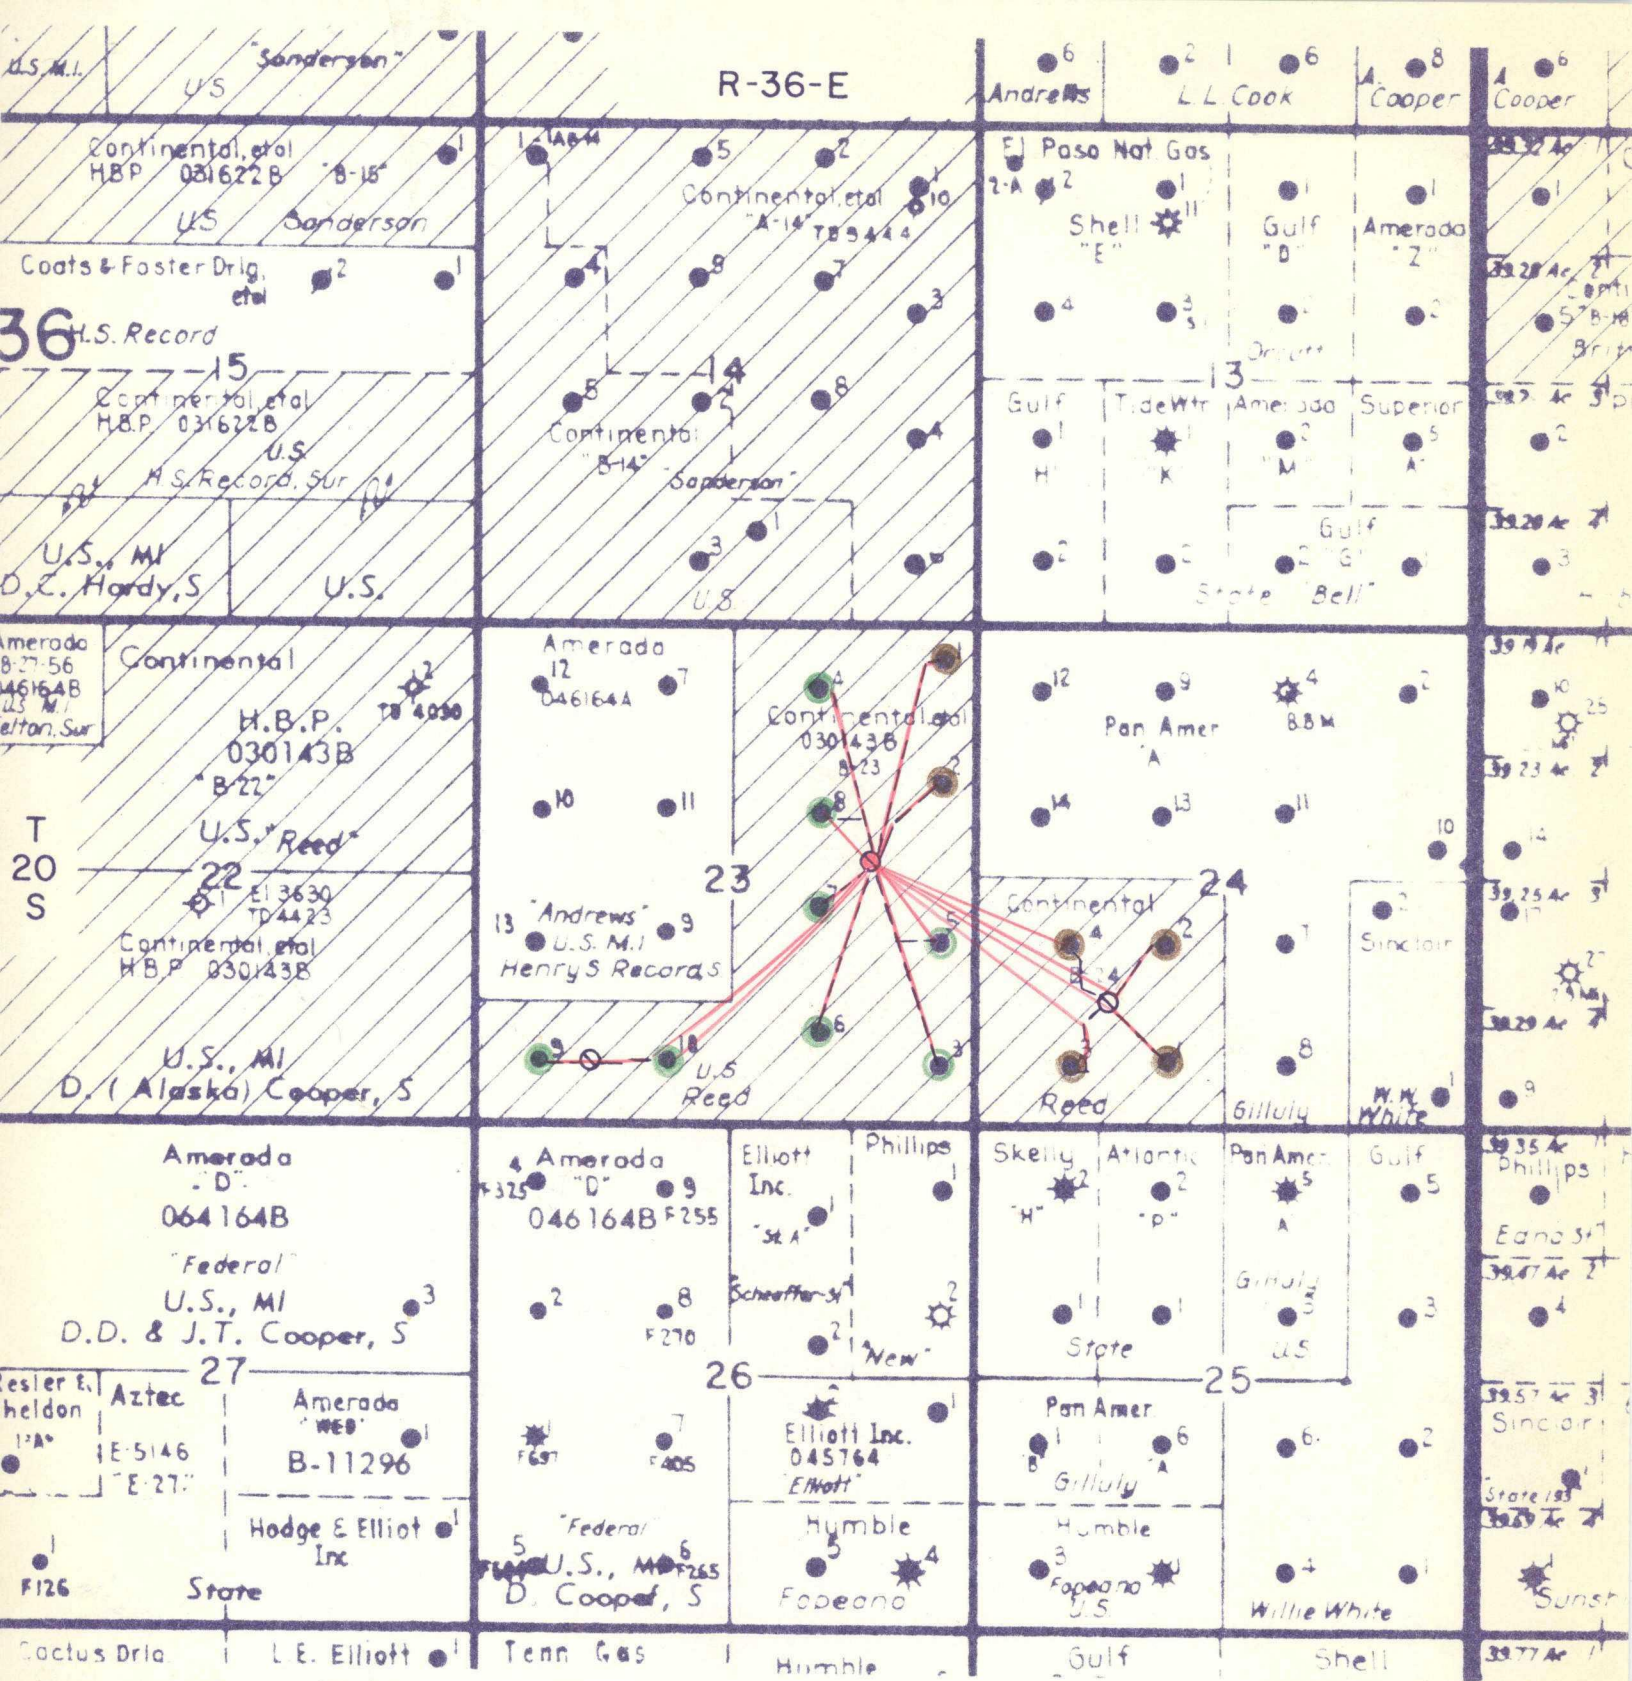 U.S. M.I.
"Sanderson"
US
R-36-E
6
Andrews
2
6
L.L. Cook
8
A.
Cooper
6
A
Cooper
Continental, etal
HBP 031622B "B-15"
1
US Sanderson
Coats & Foster Drlg.
etal
2
1
36
H.S. Record
15
Continental, etal
H.B.P. 031622B
U.S.
H.S. Record, Sur
U.S., MI
D.C. Hardy, S
U.S.
5
2
1
10
Continental, etal
"A-14" TD 9444
4
9
7
3
14
5
2
8
Continental
"B-14"
4
"Sanderson"
1
3
6
U.S.
El Paso Nat Gas
2-A
2
1
11
1
1
Shell
"E"
Gulf
"D"
Amerada
"Z"
4
3
2
2
Orcutt
13
Gulf
TideWtr
Amerada
Superior
1
1
2
5
H
"K
"M"
A"
Gulf
"G"
2
2
2
1
State "Bell"
39.32 Ac
1
39.28 Ac 2
5
"B-18"
2
39.20 Ac 4
3
Amerada
8-27-56
046164B
US M.I.
Continental
2
TD 4030
H.B.P.
030143B
"B-22"
U.S. "Reed"
T
20
S
22
1
El 3630
TD 4423
Continental, etal
H.B.P. 030143B
U.S., MI
D. (Alaska) Cooper, S
Amerada
12
7
046164A
10
11
23
"Andrews"
13
9
U.S. M.I
Henry S Records
4
1
Continental, etal
030143B
B-23
2
8
7
5
6
3
9
10
U.S
Reed
12
9
4
2
Pan Amer
A
8.8 M
14
13
11
10
24
Continental
4
2
B-24
3
1
Reed
7
8
Gilluly
2
Sinclair
W.W.
White
1
39.19 Ac
10
25
39.23 Ac 2
14
39.25 Ac 3
17
27
39.29 Ac 4
9
Amerada
"D"
064164B
"Federal"
U.S., MI
3
D.D. & J.T. Cooper, S
27
Aztec
E-5146
"E-27"
Amerada
"WEB"
1
B-11296
Hodge & Elliot
Inc
1
1
F126
State
4
Amerada
F325
"D"
9
046164B F255
2
8
F270
26
1
F697
7
F405
"Federal"
5
6
U.S., MI F265
D. Cooper, S
Elliott
Inc.
1
"St. A"
"Scheaffer-St"
2
Phillips
1
2
"New"
2
1
Elliott Inc.
045764
"Elliott"
Humble
5
4
Fopeano
Skelly
Atlantic
Pan Amer
Gulf
2
2
5
5
"H"
"P"
A
Gilluly
1
1
3
3
State
US
25
Pan Amer
1
6
6
2
"B"
"A
Gilluly
Humble
3
1
4
1
Fopeano
U.S.
Willie White
39.35 Ac
Phillips
39.47 Ac 2
4
39.57 Ac 3
Sinclair
State 193
1
Cactus Drlg
L.E. Elliott
1
Tenn Gas
Humble
Gulf
Shell
39.77 Ac